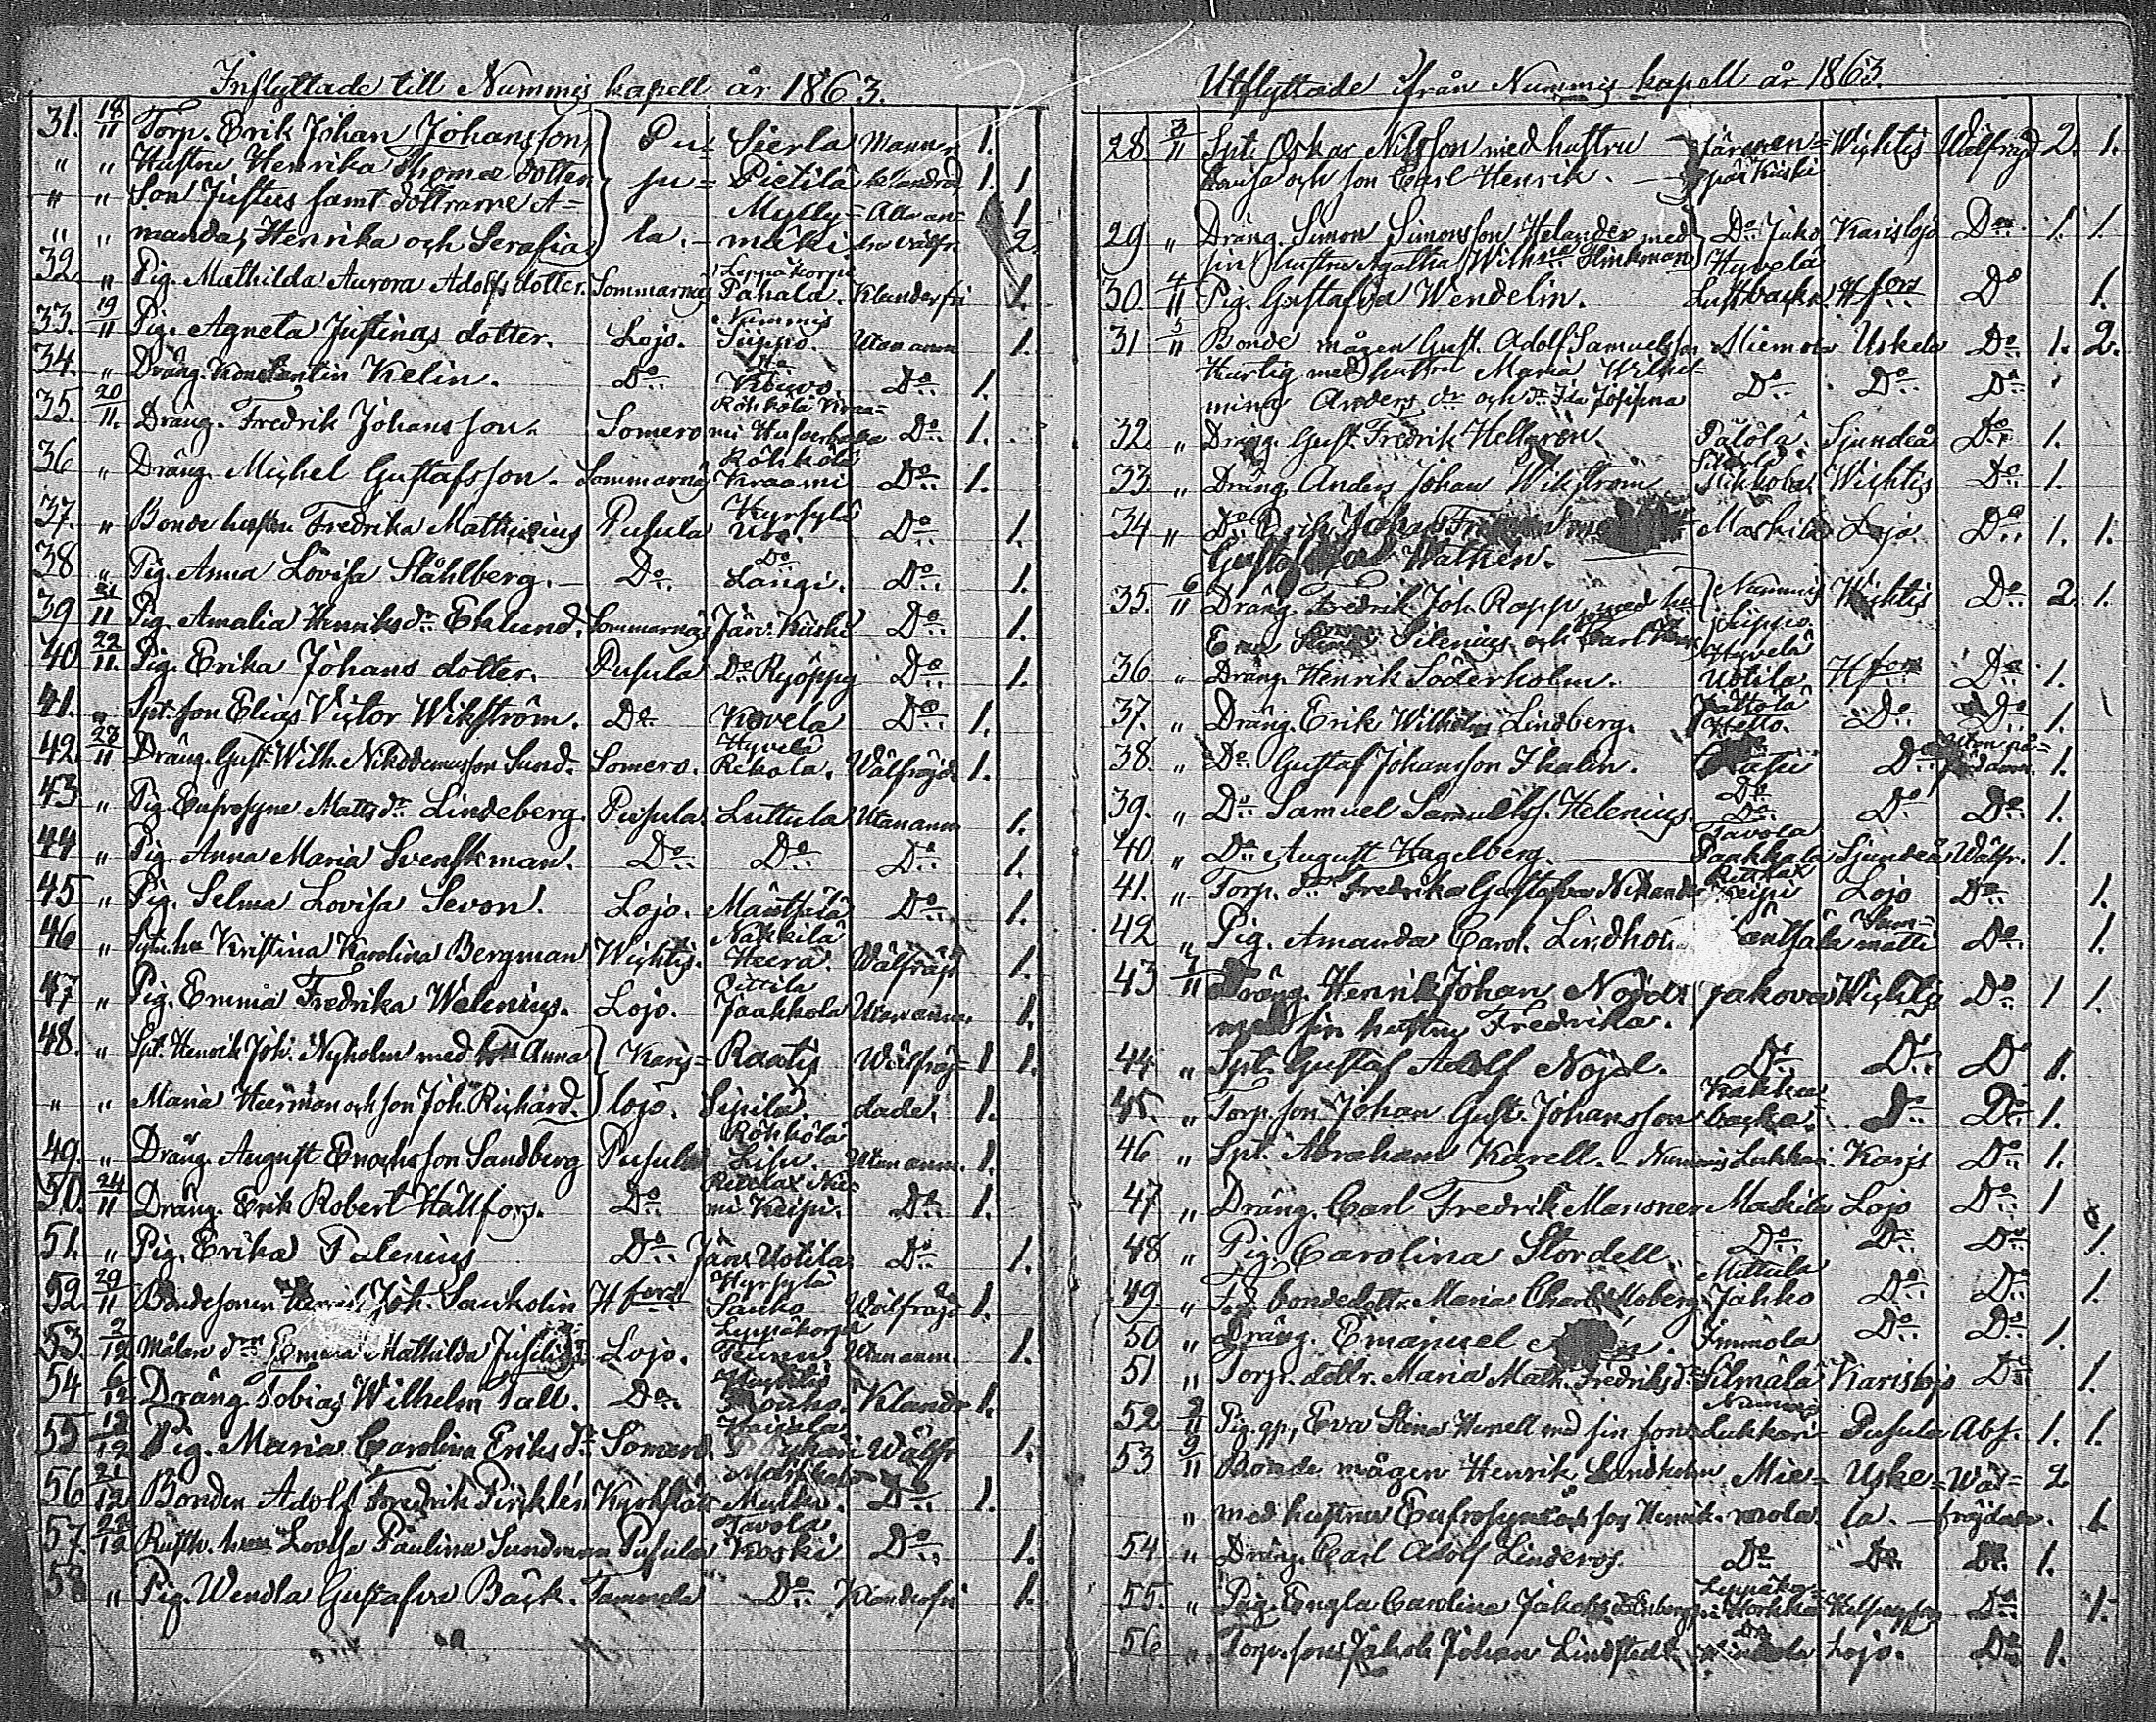 Inflyttade till Nummis kapell år 1863.
31. 18/11 Torp. Erik Johan Johansson Pu- Sierla Mann 1.
" " Hustru Henrika Thomæ dotter su- Pietilä 1. 1
" " Son Justus samt döttrarne A- Mylly- 1
" " manda, Henrika och Serafia la. mäki 2
32. " Pig. Mathilda Aurora Adolfs dotter. Sommarnäs Leppäkorpi Pahala. Klanderfri 1.
33. 19/11 Pig. Agneta Justinas dotter. Lojo. Nummis Suppo. Utan anm 1.
34. " Dräng. Konstantin Kelin. Do Do Kouvo. Do 1.
35. 20/11. Dräng. Fredrik Johansson. Somero Röhkölä Kraa-
mi Do 1.
36 " Dräng. Michel Gustafsson. Sommarnäs Röhkölä Kraami Do 1.
37. " Bonde hustru Fredrika Pusula Hyrsylä Uro. Do 1.
38 " Pig. Anna Lovisa Ståhlberg. Do Do Langi. Do 1.
39 21/11 Pig. Amalia Henriksdr Eklund. Sommarnäs Järv. Kiiski Do 1.
40 22/11. Pig. Erika Johans dotter. Pusula Do Ryöppy Do 1.
41. " Spt. son Elias Victor Wikström. Do Kovela Do 1.
42. 23/11 Dräng. Gust. Wilh. Nikodemusson Sund. Somero. Hyvelä Rekola. Wälfräjd. 1.
43 " Pig. Eufrosyne Mattsdr Lindeberg. Pusula. Luttula Utan anm 1.
44 " Pig. Anna Maria Svenskman. Do Do Do 1.
45 " Pig. Selma Lovisa Sevon. Lojo. Mäntsälä Do 1.
46 " Kristina Karolina Bergman Wichtis. Nakkila Heera. Wälfräjd 1.
47 " Pig. Emma Fredrika Welenius. Lojo. Oittila Jaakkola Utan anm. 1.
48. " Spt. Henrik Joh. Nyholm med Anna Karis- Raatis Wälfräj- 1 1.
" " Maria Heerman och son Joh. Richard. lojo. Sipilä. dade. 1.
49. " Dräng. August Enochsson Sandberg Pusula Röhkölä Lisu. Utan anm. 1.
50. 24/11 Dräng. Erik Robert Hällfors. Do Retlax Nie-
mi Keipi. Do 1.
51. " Pig. Erika Palenius Do Järv. Uotila Do 1.
52. 29/11 Bondesonen Joh. Saukolin Hfors Hyrsylä Sauko Wälfräjd 1.
53. 2/12 Målar dr Emma Mathilda Lojo. Leppäkorpi Utan anm. 1.
54 6/12 Dräng Tobias Wilhelm Tall. Do Klandr 1.
55 12 Pig. Maria Carolina Eriks dr Somero. Wälfr 1.
56 21/12 Bonden Adolf Fredrik Kyrkslätt Do 1.
57. 22/12 Lovisa Paulina Sundman Pusula Tavola Koski Do 1.
58 " Pig. Wendla Gustafva Bäck. Tammela Do Klanderfri 1.
Utflyttade ifrån Nummis kapell år 1863.
28. 3/11 Spt. Oskar Nilsson med hustru Järven- Wichtis Wälfräjd 2. 1.
och son Carl Henrik. pää Kiiski
29 " Dräng. Simon Simonsson Helander med Do Juko Karislojo Do 1. 1.
sin hustru Agatha Wilhelmina Hyvelä
30. 4/11 Pig. Gustafva Wendelin. Luttbacka Hfors Do 1.
31 5/11 Bonde mågen Gust. Adolf Samuelsson Miemola Uskela Do 1. 2.
Hartig med hustru Maria Wilhel- Do Do Do
mina Anders dr och dr Ida Josefina
32 " Dräng. Gust. Fredrik Hellgren. Pälölä. Sjundeå Do 1.
33 " Dräng. Anders Johan Wikström Wichtis Do 1.
34 " Do Erik Johan Maskila Lojo Do 1. 1.
Wathen.
35. 6/11 Dräng. Fredrik Joh. Rapp, med hu- Nummis Wichtis Do 2. 1.
Silenius och Carl Suppo.
36 " Dräng. Henrik Söderholm. Hyvelä Uotila Hfors Do 1.
37. " Dräng. Erik Wilhelm Lindberg. Do Do 1.
38. " Do Gustaf Johansson Thulin. Do 1.
39. " Do Samuel Samuelss. Helenius. Do Do Do Do 1.
40. " Do August Hagelberg. Tavola Paakkala Sjundeå Wälfr. 1.
41. " Torp. dr Fredrika Gustafva Nikander Retlax Keipi Lojo Do 1.
42 " Pig. Amanda Carol. Mäntsälä Sam-
matti Do 1.
43 7/11 Dräng. Henrik Johan Nöjd Jakova Wichtis Do 1 1.
med sin hustru Fredrika.
44 " Spt. Gustaf Adolf Nöjd. Do Do Do 1.
45. " Torp. son Johan Gust. Johansson backa. Do Do 1.
46 " Spt. Abraham Karell. Nummis Lukkari. Karis Do 1.
47 " Dräng. Carl Fredrik Mansner Maskila Lojo Do 1
48 " Pig. Carolina Stordell. Do Do Do 1.
49. " bondedottr. Maria Charl. Moberg Mättula Jakko Do Do 1.
50 " Dräng. Emanuel Immola Do Do 1.
51 " Torp. dottr. Maria Math. Fredriksdr Silmälä Karislojo Do 1.
52 2/11 Pig. Eva Stina med sin son Nummis Lukkari Pusula Abs. 1. 1.
53 9/11 Bonde mågen Henrik Lindholm Mie- Uske- Wäl- 2
" med hustru Eufrosyne och son Henrik. mola. la. fräjdade. 1.
54 " Dräng. Carl Adolf Linderos. Do Do Do 1.
55. " Pig. Engla Carolina Jakobsdr Leppäkor-
pi Helsingfors Do 1.
56 " Torp. son Jakob Johan Lindstedt Lojo. Do 1.